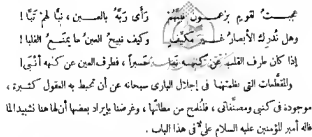 عجبتُ لقومٍ يزعمون نبيَّهم رأى ربَّه بالعين، تبًّا لهم تبًّا!
وهل تُدرك الأبصارُ غير مكيَّفٍ وكيف تبيح العينُ ما يمنع القلبا!
إذا كان طرف القلب عن كنهه حسيرًا، فطرف العين عن كنهه أنبى!
والمقطّعات التي نظمتها في إجلال الباري سبحانه عن أن تحيط به العقول كثيرة،
موجودة في كتبي ومصنّفاتي، فلتلمح من مظانّها، وغرضنا بإيراد بعضها أنّ لها هنا تشييدا لما
قاله أمير المؤمنين عليه السلام عليٌّ في هذا الباب.